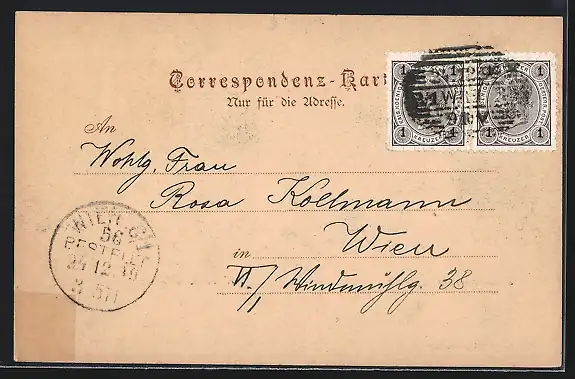 Correspondenz-Kart
Nur für die Adresse.
1 1 1 1
1 KREUZER 1 1 KREUZER 1
An
Wohlg. Frau
Rosa Kollmann
in Wien
VI/1 Windmühlg. 38
WIEN 6/1
56
BESTELLT
24 12